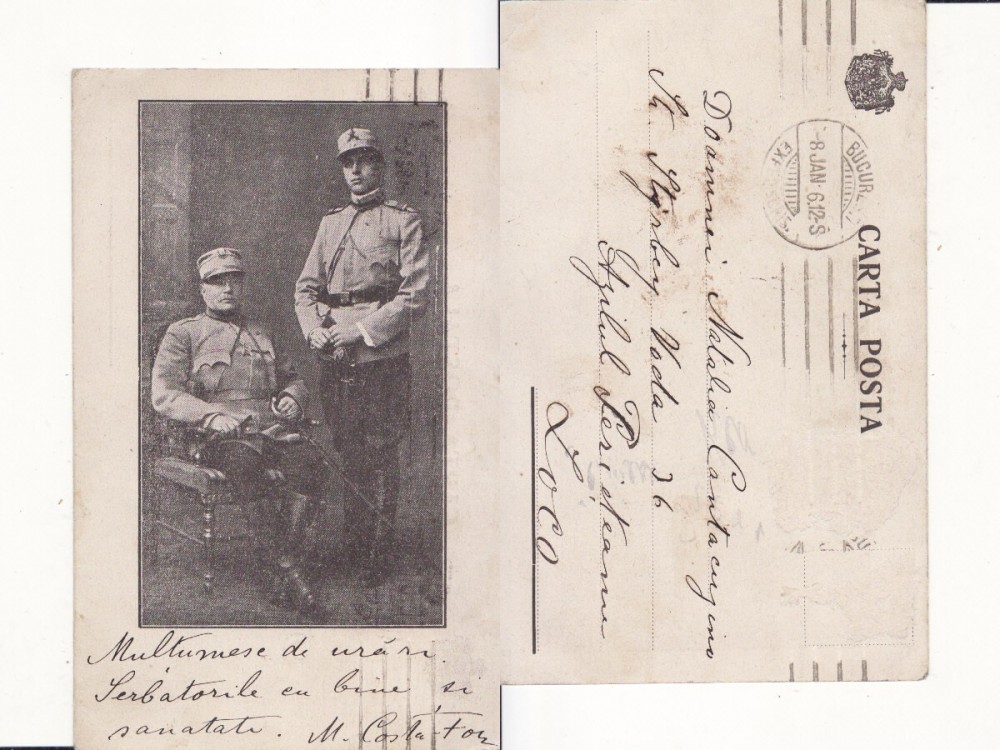 Multumesc de urări.
Serbătorile cu bine și
sanatate. M. Costa-For
CARTA POSTA
BUCUR
8 JAN. 6.12-S
Doamnei Natalia Cantacuzino
St. Știrbey Voda 36
Azilul Perieteanu
Loco